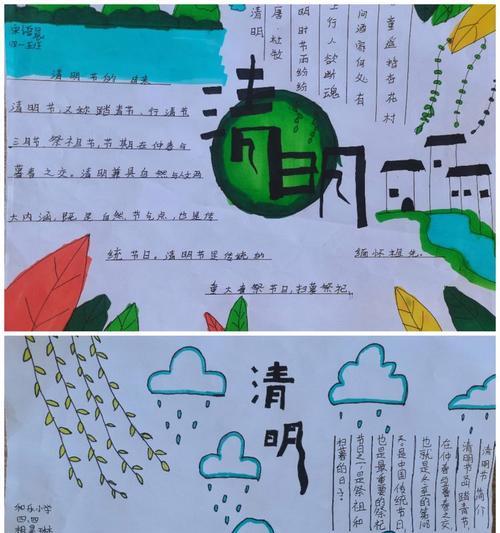 宋语晨
四一五班
清明节的由来
清明节,又称踏青节、行清节
三月节、祭祖节,节期在仲春与
暮春之交。清明兼具自然与人文
大内涵,既是自然节气点,也是传
统节日。清明节是传统的
重大春祭节日,扫墓祭祀、
缅怀祖先。
清明
唐·杜牧
明时节雨纷纷
上行人欲断魂
问酒家何处有
童遥指杏花村
清明
清明
清明节简介
清明节又叫踏青节,
在仲春与暮春之交,
也就是冬至的第108
天。是中国传统节日,
也是最重要的祭祀
节日之一,是祭祖和
扫墓的日子。
和乐小学
四.四